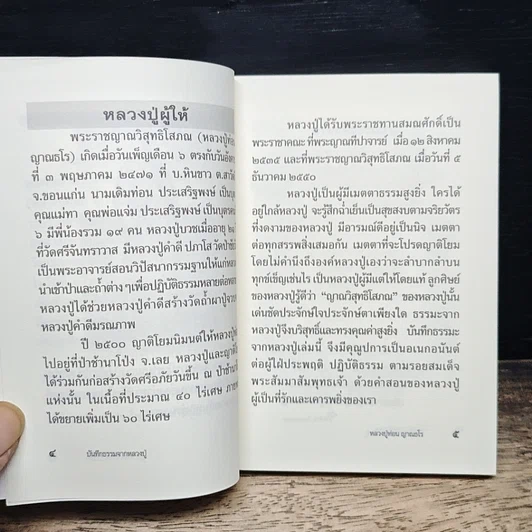 หลวงปู่ผู้ให้
พระราชญาณวิสุทธิโสภณ (หลวงปู่ท่อน
ญาณธโร) เกิดเมื่อวันเพ็ญเดือน ๖ ตรงกับวันอังคาร
ที่ ๓ พฤษภาคม ๒๔๗๑ ที่ บ.หินขาว ต.สาวะถี
จ.ขอนแก่น นามเดิมท่อน ประเสริฐพงษ์ เป็นบุตร
คุณแม่ทา คุณพ่อแจ่ม ประเสริฐพงษ์ เป็นบุตรคนที่
๖ มีพี่น้องรวม ๑๙ คน หลวงปู่บวชเมื่ออายุ ๒๐ ปี
ที่วัดศรีจันทราวาส มีหลวงปู่คำดี ปภาโสวัดป่าชัยวัน
เป็นพระอาจารย์สอนวิปัสนากรรมฐานให้แก่หลวงปู่
นำเข้าป่าและถ้ำต่างๆเพื่อปฏิบัติธรรมหลายต่อหลาย
ปู่ได้ช่วยหลวงปู่คำดีสร้างวัดถ้ำผาปู่จาก
หลวงปู่คำดีมรณภาพ
ปี ๒๕๐๐ ญาติโยมนิมนต์ให้หลวงปู่
ไปอยู่ที่ป่าช้านาโป่ง จ.เลย หลวงปู่และญาติโยม
ได้ร่วมกันก่อสร้างวัดศรีอภัยวันขึ้น ณ ป่าช้า
แห่งนั้น ในเนื้อที่ประมาณ ๔๐ ไร่เศษ ภาย
ได้ขยายเพิ่มเป็น ๖๐ ไร่เศษ
๔ บันทึกธรรมจากหลวงปู่
หลวงปู่ได้รับพระราชทานสมณศักดิ์เป็น
พระราชาคณะ ที่พระญาณทีปาจารย์ เมื่อ ๑๒ สิงหาคม
๒๕๓๕ และที่พระราชญาณวิสุทธิโสภณ เมื่อวันที่ ๕
ธันวาคม ๒๕๕๐
หลวงปู่เป็นผู้มีเมตตาธรรมสูงยิ่ง ใครได้
อยู่ใกล้หลวงปู่ จะรู้สึกฉ่ำเย็นเป็นสุขสงบตามจริยวัตร
ที่งดงามของหลวงปู่ มีอารมณ์ดีอยู่เป็นนิจ เมตตา
ต่อทุกสรรพสิ่งเสมอกัน เมตตาที่จะโปรดญาติโยม
โดยไม่คำนึงถึงองค์หลวงปู่เองว่าจะลำบากลำบน
ทุกข์เข็ญเช่นไร เป็นหลวงปู่ผู้มีแต่ให้โดยแท้ ลูกศิษย์
ของหลวงปู่รู้ดีว่า “ญาณวิสุทธิโสภณ” ของหลวงปู่นั้น
เด่นชัดประจักษ์ใจประจักษ์ตาเพียงใด ธรรมะจาก
หลวงปู่จึงบริสุทธิ์และทรงคุณค่าสูงยิ่ง บันทึกธรรมะ
จากหลวงปู่เล่มนี้ จึงมีคุณูปการเป็นอเนกอนันต์
ต่อผู้ใฝ่ประพฤติ ปฏิบัติธรรม ตามรอยสมเด็จ
พระสัมมาสัมพุทธเจ้า ด้วยคำสอนของหลวงปู่
ผู้เป็นที่รักและเคารพยิ่งของเรา
หลวงปู่ท่อน ญาณธโร ๕